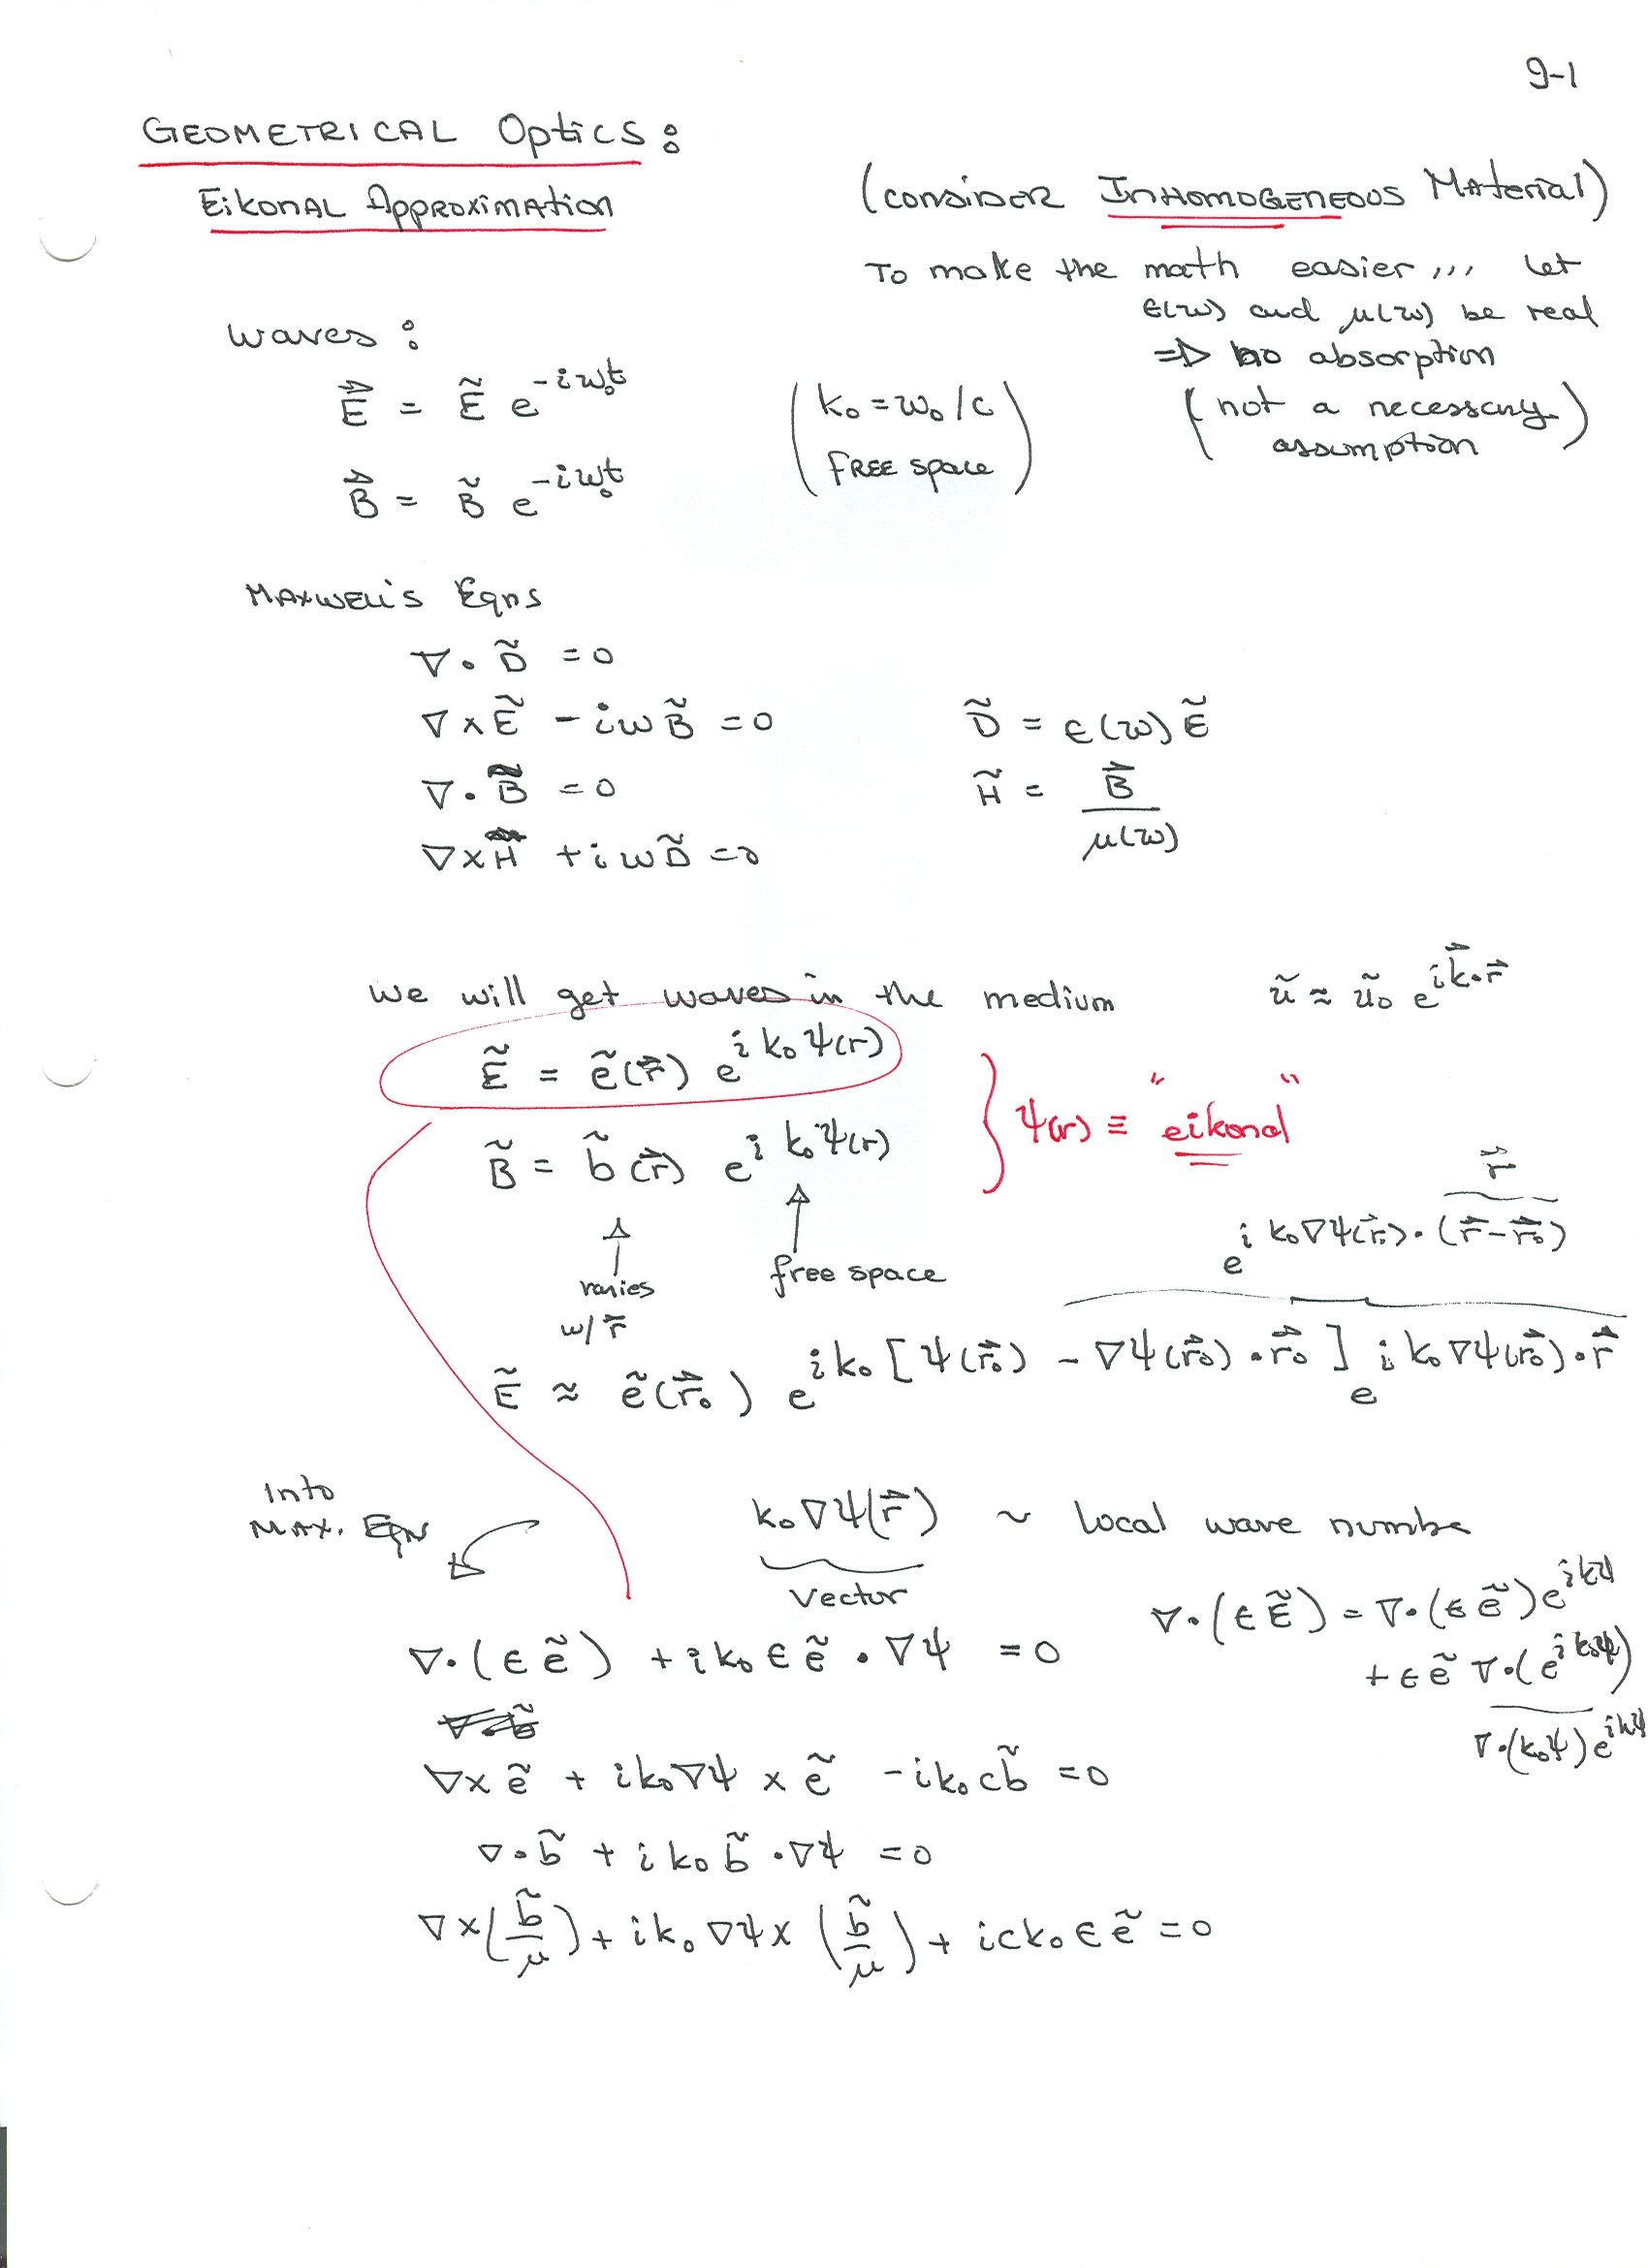 9-1
GEOMETRICAL Optics:
Eikonal Approximation
(consider INHOMOGENEOUS Material)
To make the math easier,,, let
ε(ω) and μ(ω) be real
⇒ no absorption
(not a necessary assumption)
waves:
E⃗ = Ẽ e^{-iω₀t}
(k₀ = ω₀/c
FREE space)
B⃗ = B̃ e^{-iω₀t}
MAXWELL'S Eqns
∇·D̃ = 0
∇×Ẽ - iωB̃ = 0
D̃ = ε(ω)Ẽ
∇·B̃ = 0
H̃ = B⃗/μ(ω)
∇×H̃ + iωD̃ = 0
we will get waves in the medium
ũ ≈ ũ₀ e^{ik⃗·r⃗}
Ẽ = ẽ(r⃗) e^{ik₀ψ(r)}
B̃ = b̃(r⃗) e^{ik₀ψ(r)}
} ψ(r) ≡ "eikonal"
varies
w/ r⃗
free space
r⃗
e^{ik₀∇ψ(r⃗₀)·(r⃗-r⃗₀)}
Ẽ ≈ ẽ(r⃗₀) e^{ik₀[ψ(r⃗₀) - ∇ψ(r⃗₀)·r⃗₀]} e^{ik₀∇ψ(r⃗₀)·r⃗}
Into
MAX. Eqns
k₀∇ψ(r⃗) ~ local wave numbe
vector
∇·(εẽ) + ik₀εẽ·∇ψ = 0
∇·(εẼ) = ∇·(εẽ)e^{ikψ}
+ εẽ ∇·(e^{ik₀ψ})
∇·(k₀ψ)e^{ikψ}
∇×ẽ + ik₀∇ψ×ẽ - ik₀cb̃ = 0
∇·b̃ + ik₀b̃·∇ψ = 0
∇×(b̃/μ) + ik₀∇ψ×(b̃/μ) + ick₀εẽ = 0